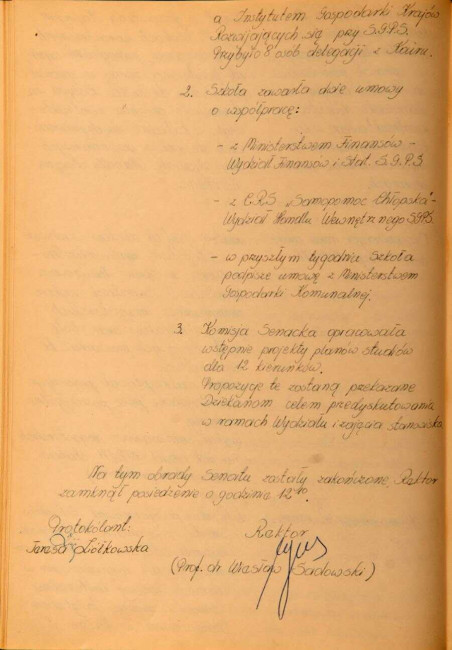 a Instytutem Gospodarki Krajów
Rozwijających się przy S.G.P.S.
Przybyło 8 osób delegacji z Kairu.
2. Szkoła zawarła dwie umowy
o współpracę:
- z Ministerstwem Finansów -
Wydział Finansów i Stat. S.G.P.S
- z CRS „Samopomoc Chłopska"-
Wydział Handlu Wewnętrznego SGPS.
- w przyszłym tygodniu Szkoła
podpisze umowę z Ministerstwem
Gospodarki Komunalnej.
3. Komisja Senacka opracowała
wstępnie projekty planów studiów
dla 12 kierunków.
Propozycje te zostaną przekazane
Dziekanom celem przedyskutowania
w ramach Wydziału i zajęcia stanowiska
Na tym obrady Senatu zostały zakończone, Rektor
zamknął posiedzenie o godzinie 12
Protokolant: Rektor
Teresa Żółkowska
(Prof. dr Wiesław Sadowski)